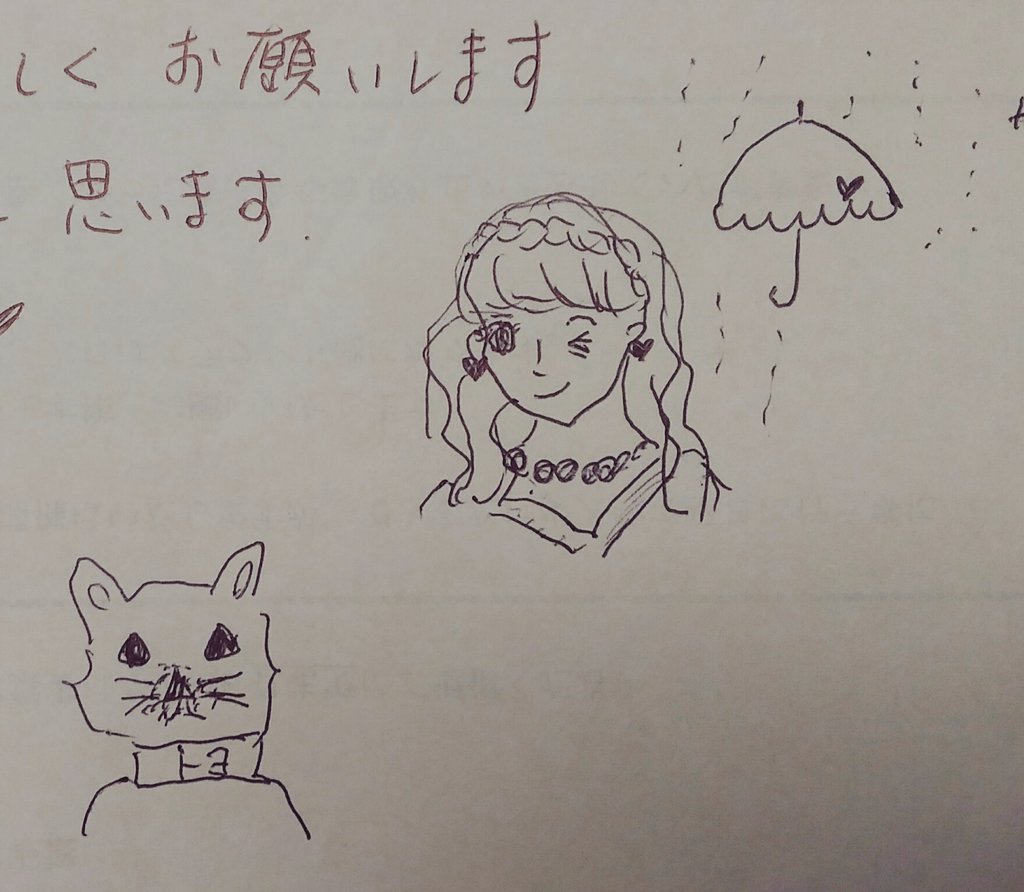 しく お願いします
思います.
トヨ